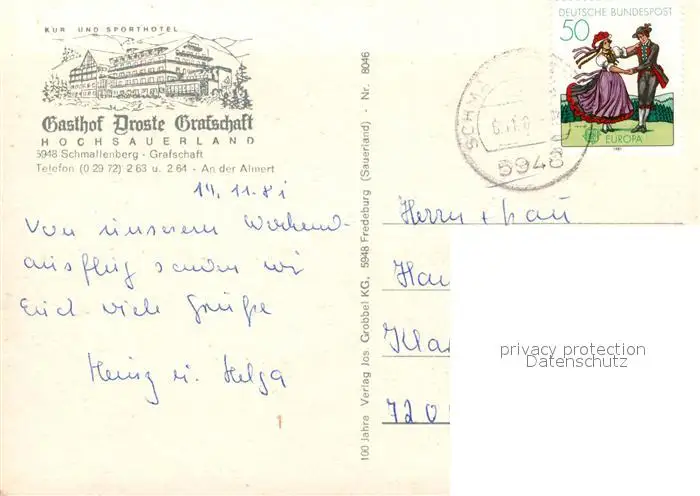 KUR UND SPORTHOTEL
Gasthof Droste Grafschaft
HOCHSAUERLAND
5948 Schmallenberg - Grafschaft
Telefon (0 29 72) 2 63 u. 2 64 - An der Almert
14.11.81
Von unserem Wochenend-
ausflug senden wir
Euch viele Grüße
Heinz u. Helga
1
100 Jahre Verlag Jos. Grobbel KG, 5948 Fredeburg (Sauerland) · Nr. 8046
DEUTSCHE BUNDESPOST
50
EUROPA
1981
SCHMA
5948
Herrn + Frau
Hau
Kla
720
privacy protection
Datenschutz